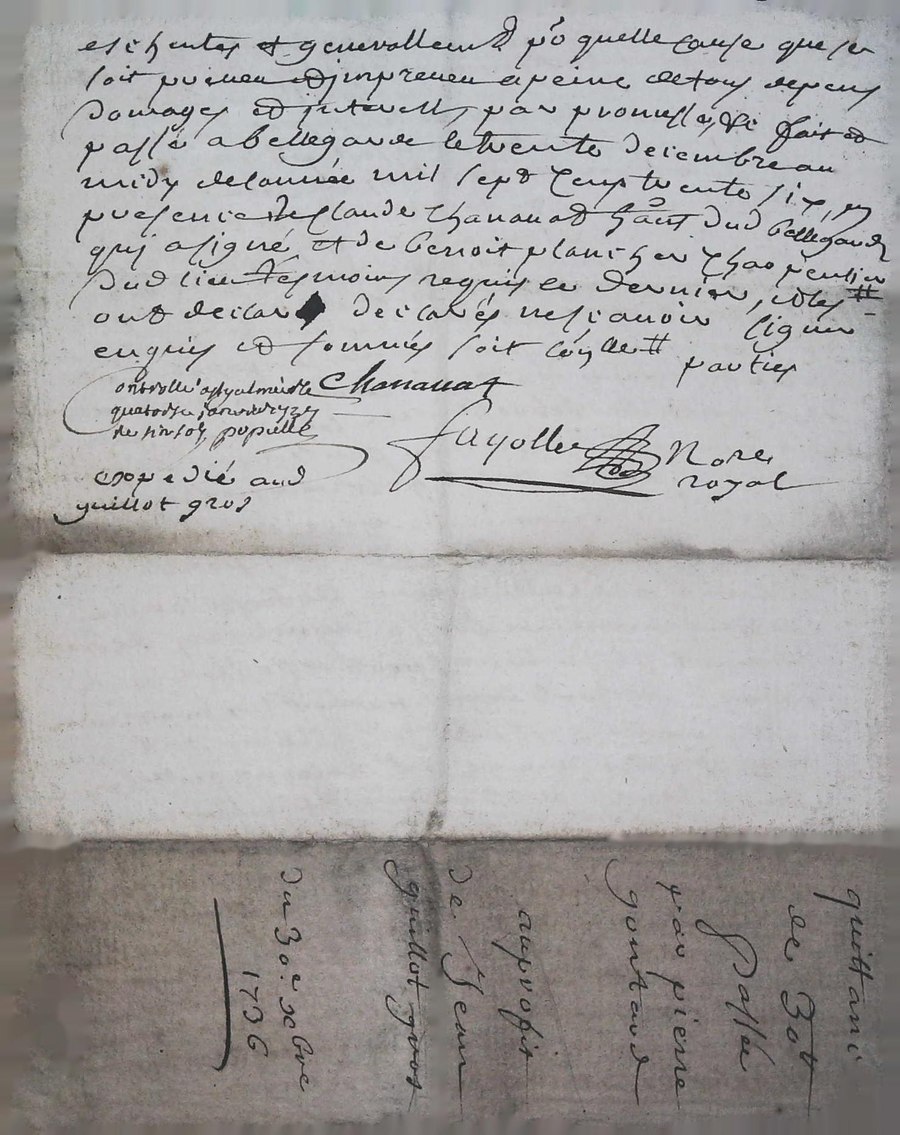 eschentes et generallemt po quelle cause que ce
soit preveu et impreveu a peine de tous depens
domages et interests par promesses &c fait et
passé a bellegarde le trente decembre au
midy de lannée mil sept cent trente six en
presence de s claude chanavat hant dud bellegarde
qui a signé et de benoit plancher charpentier
dud lieu tesmoins requis ce dernier, et les #
ont declaré declarés ne scavoir signer
enquis et sommés soit #
parties
Chanavat
quatorze janvier 1737
Fayolle Nore
royal
expedié aud
guillot gros
quittance
de 30tt
passée
par pierre
gontard
au profit
de Jean
guillot gros
du 30.e xbre
1736